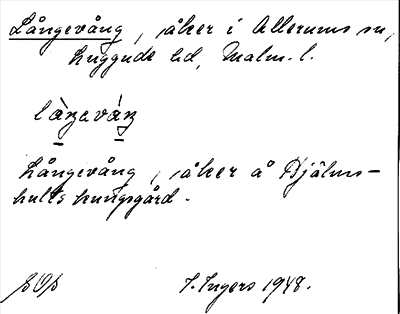 Långevång, åker i Allerums sn,
Luggude hd, Malm. l.
Långevång, åker å Djälms-
hults kungsgård.
I. Ingers 1948.